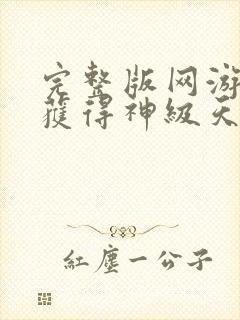 完整版网游
獲得神級天
紅塵一公子